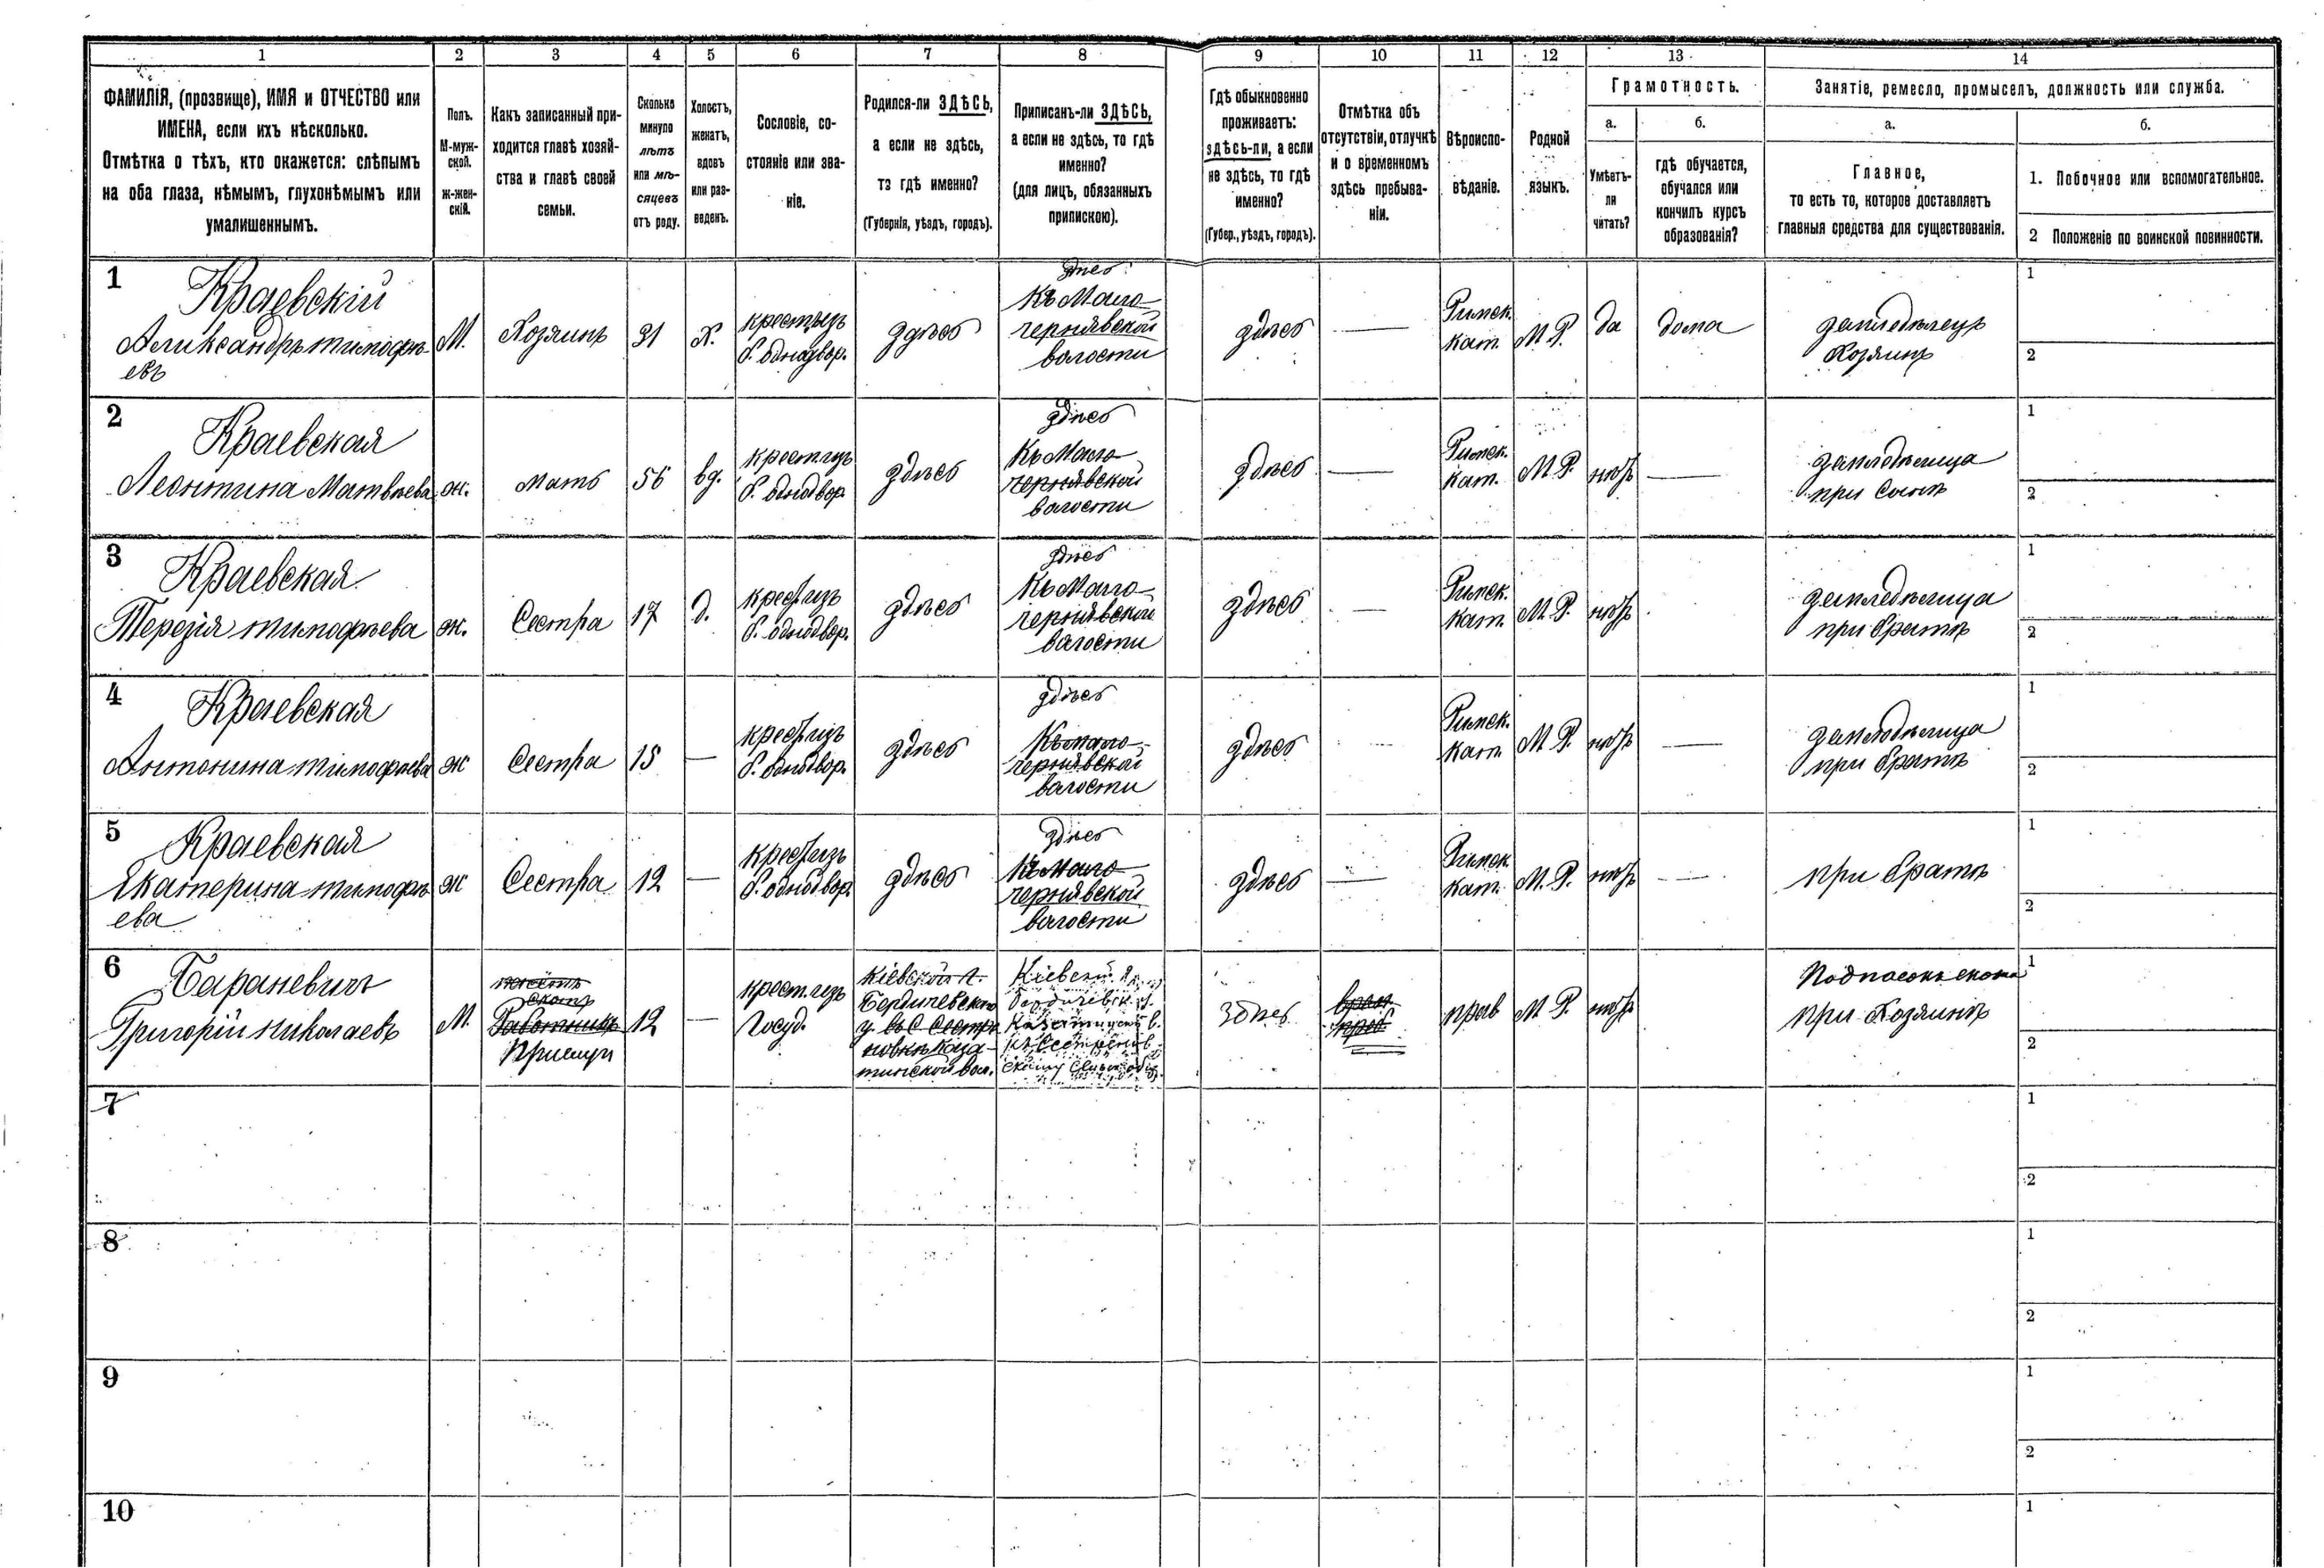 1 2 3 4 5 6 7 8 9 10 11 12 13 14
ФАМИЛІЯ, (прозвище), ИМЯ и ОТЧЕСТВО или
ИМЕНА, если ихъ нѣсколько.
Отмѣтка о тѣхъ, кто окажется: слѣпымъ
на оба глаза, нѣмымъ, глухонѣмымъ или
умалишеннымъ.
Полъ.
М-муж-
ской.
ж-жен-
скій.
Какъ записанный при-
ходится главѣ хозяй-
ства и главѣ своей
семьи.
Сколько
минуло
лѣтъ
или мѣ-
сяцевъ
отъ роду.
Холостъ,
женатъ,
вдовъ
или раз-
веденъ.
Сословіе, со-
стояніе или зва-
ніе.
Родился-ли ЗДѢСЬ,
а если не здѣсь,
то гдѣ именно?
(Губернія, уѣздъ, городъ).
Приписанъ-ли ЗДѢСЬ,
а если не здѣсь, то гдѣ
именно?
(для лицъ, обязанныхъ
припискою).
Гдѣ обыкновенно
проживаетъ:
здѣсь-ли, а если
не здѣсь, то гдѣ
именно?
(Губер., уѣздъ, городъ).
Отмѣтка объ
отсутствіи, отлучкѣ
и о временномъ
здѣсь пребыва-
ніи.
Вѣроиспо-
вѣданіе.
Родной
языкъ.
Грамотность.
а.
Умѣетъ-
ли
читать?
б.
гдѣ обучается,
обучался или
кончилъ курсъ
образованія?
Занятіе, ремесло, промыселъ, должность или служба.
а.
Главное,
то есть то, которое доставляетъ
главныя средства для существованія.
б.
1. Побочное или вспомогательное.
2 Положеніе по воинской повинности.
1
Краевскій
Александръ тимофѣ-
евъ
М.
Хозяинъ
31
Х.
крестьизъ
б. однодвор.
здѣсь
здѣсь
Къ Мало-
чернявской
волости
здѣсь
—
Римск.
Кат.
М. Р.
да
дома
земледѣлецъ
Хозяинъ
1
2
2
Краевская
Леонтина Матвѣева
ж.
мать
56
вд.
крест изъ
б. однодвор.
здѣсь
здѣсь
Къ Мало-
чернявской
волости
здѣсь
—
Римск.
Кат.
М. Р.
нѣтъ
—
земледѣлица
при Сынѣ
1
2
3
Краевская
Терезія тимофѣева
ж.
Сестра
17
д.
крест изъ
б. однодвор.
здѣсь
здѣсь
Къ Мало-
чернявской
волости
здѣсь
—
Римск.
Кат.
М. Р.
нѣтъ
земледѣлица
при братѣ
1
2
4
Краевская
Антонина тимофѣева
ж
Сестра
15
—
крест изъ
б. однодвор.
здѣсь
здѣсь
Къ мало-
чернявской
волости
здѣсь
—
Римск.
Кат.
М. Р.
нѣтъ
—
земледѣлица
при братѣ
1
2
5
Краевская
Екатерина тимофѣ
ева
ж
Сестра
12
—
крест изъ
б. однодвор.
здѣсь
здѣсь
Къ Мало-
чернявской
волости
здѣсь
—
Римск.
Кат.
М. Р.
нѣтъ
—
при братѣ
1
2
6
Бараневичъ
Григорій Николаевъ
М.
пасетъ
скотъ
Работникъ
12
—
крест. изъ
Госуд.
Кіевской г.
Бердичевскаго
у. въ С Сестре
новкѣ Каза-
тинской вол.
Кіевск
Бердичевск.
Казатинской в.
здѣсь
врем
преб
прав
М. Р.
нѣтъ
Подпасокъ скота
при Хозяинѣ
1
2
7
1
2
8
1
2
9
1
2
10
1